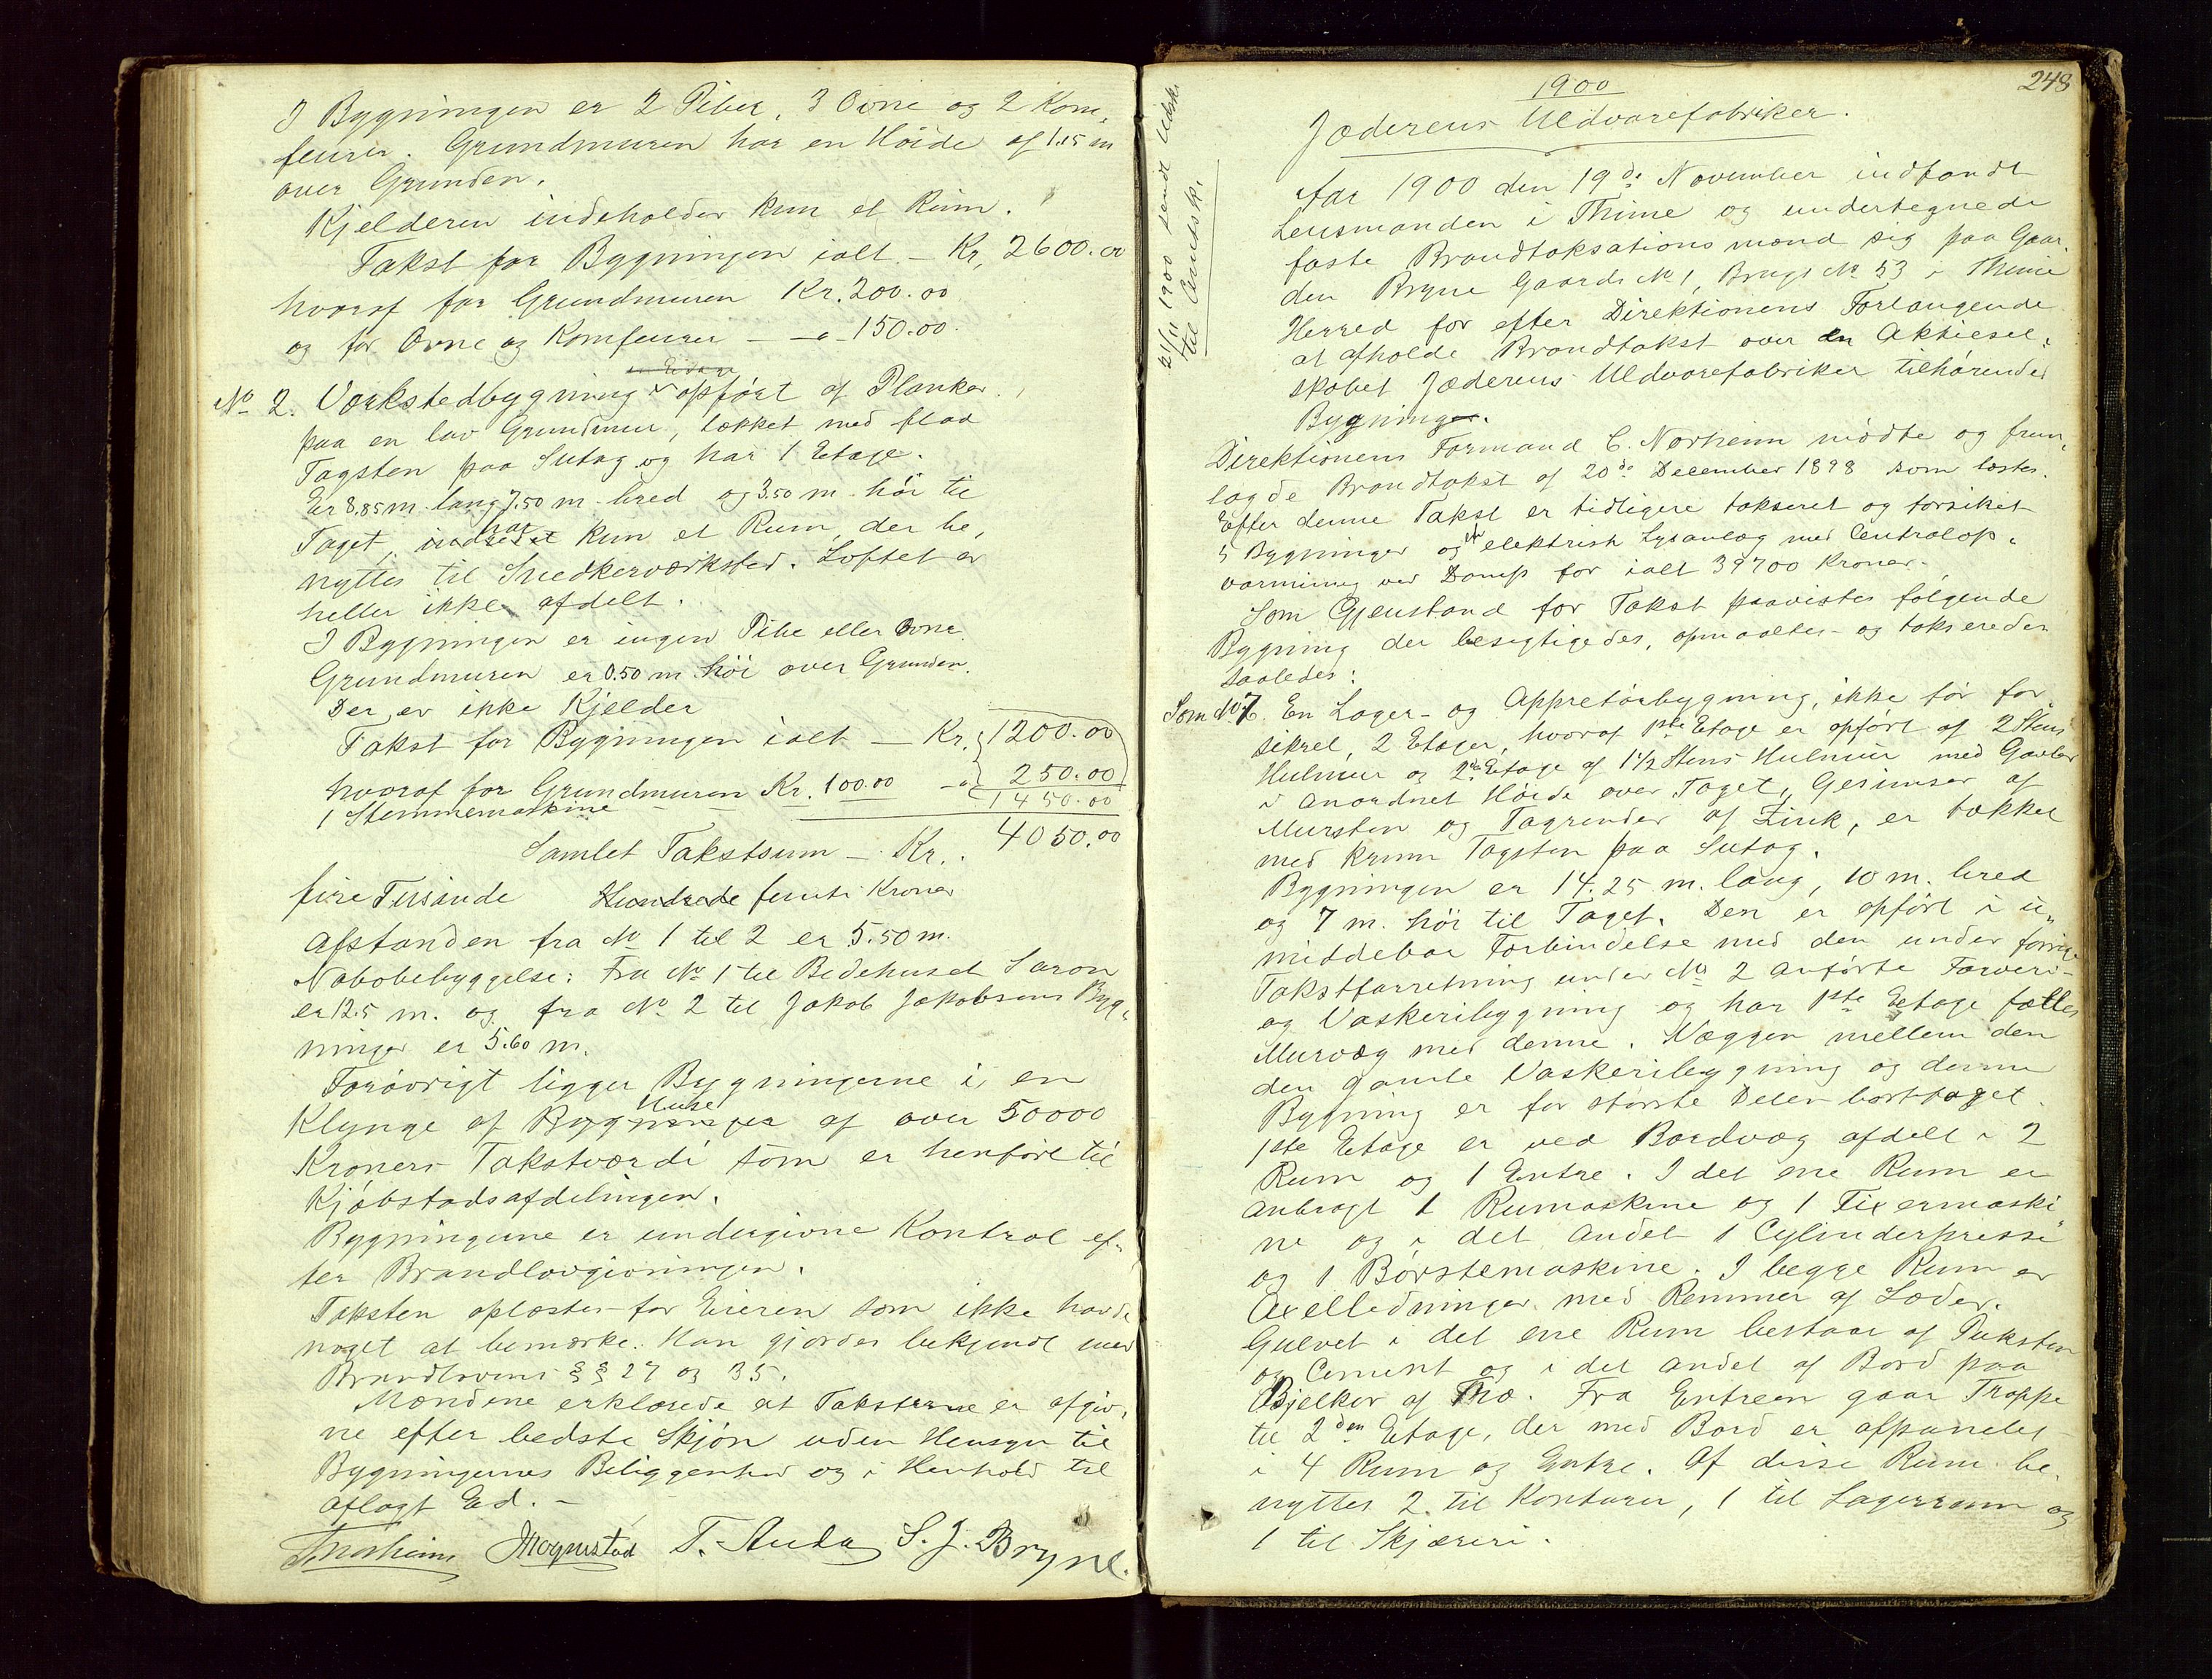 I Bygningen er 2 Piber, 3 Ovne og 2 Kom,
feurer. Grundmuren har en Höide af 1.15 m
over Grunden.
Kjelderen indeholder kun et Rum.
Takst for Bygningen ialt – Kr, 2600.00
hvoraf for Grundmuren Kr. 200.00
og for Ovne og Komfeurer – – „ – 150.00.
No 2. Værkstedbygning opført af Planker
paa en lav Grundmur, tækket med flad
Tagsten paa Sutag og har 1 Etage.
Er 8.85 m lang 7.50 m bred og 3.50 m höi til
Taget, indredet har kun et Rum, der be,
nyttes til Snedkerværksted. Loftet er
heller ikke afdelt.
I Bygningen er ingen Pibe eller Ovne.
Grundmuren er 0.50 m höi over Grunden.
Der er ikke Kjelder
Takst for Bygningen ialt – Kr. 1200.00
hvoraf for Grundmuren Kr. 100.00 – „ 250.00
1 Stemmemaskine – – 1450.00
Samlet Takstsum – Kr. 4050.00
fire Tusinde Hundrede femti Kroner
Afstanden fra No 1 til 2 er 5.50 m.
Nabobebyggelse: Fra No 1 til Bedehuset Saron
er 12.5 m. og fra No 2 til Jakob Jakobsens Byg,
ninger er 5.60 m.
Forøvrigt ligger Bygningerne i en
Klynge af Bygninger Huse af over 50000
Kroners Takstværdi som er henfört til
Kjöbstadsafdelingen.
Bygningerne er undergivne Kontrol ef,
ter Brandlovgivningen.
Taksten oplæstes for Eieren som ikke havde
noget at bemærke. Han gjordes bekjendt med
Brandlovens §§ 27 og 35.
Mændene erklærede at Taksterne er afgiv,
ne efter bedste Skjøn uden Hensyn til
Bygningernes Beliggenhed og i Henhold til
aflagt Ed. –
Mognstad T. Auda S. J. Bryne.
21/11 1900 sendt Udsk.
til Amtssk.
1900
248
Jæderens Uldvarefabriker.
Aar 1900 den 19de November indfandt
Lensmanden i Thime og undertegnede
faste Brandtaksationsmænd sig paa Gaar,
den Bryne Gaards No 1, Brugs No 53 i Thime
Herred for efter Direktionens Forlangende
at afholde Brandtakst over en Aktiesel,
skabet Jæderens Uldvarefabriker tilhørende
Bygninger.
Direktionens Formand C. Norheim mödte og frem,
lagde Brandtakst af 20de December 1898 som læstes.
Efter denne Takst er tidligere takseret og forsikret
5 Bygninger og et elektrisk Lysanlæg med Centralop,
varmning ved Damp for ialt 39700 Kroner.
Som Gjenstand for Takst paavistes følgende
Bygning der besigtigedes, opmaaltes og takseredes
saaledes:
Som No 7. En Lager- og Appretörbygning, ikke för for
sikret, 2 Etager, hvoraf 1ste Etage er opført af 2 Stens
Hulmur og 2den Etage af 1 1/2 Stens Hulmur med Gavler
i anordnet Höide over Taget, Gesimser af
Mursten og Tagrender af Zink, er tækket
med krum Tagsten paa Sutag.
Bygningen er 14.25 m. lang, 10 m. bred
og 7 m. höi til Taget. Den er opført i u,
middebar Forbindelse med den under forrige
Takstforretning under No 2 anførte Farveri-
og Vaskeribygning og har 1ste Etage fælles
Murvæg med denne. Væggen mellem den
den gamle Vaskeribygning og denne
Bygning er for største Delen borttaget.
1ste Etage er ved Bordvæg afdelt i 2
Rum og 1 Entre. I det ene Rum er
anbragt 1 Rumaskine og 1 Fixermaski
ne og i det andet 1 Cylinderpresse
og 1 Börstemaskine. I begge Rum er
Axelledninger med Remmer af Læder.
Gulvet i det ene Rum bestaar af Puksten
og Cement og i det andet af Bord paa
Bjelker af Træ. Fra Entreen gaar Trappe
til 2den Etage, der med Bord er afpanelet
i 4 Rum og Entre. Af disse Rum be,
nyttes 2 til Kontorer, 1 til Lagerrum og
1 til Skjæreri.